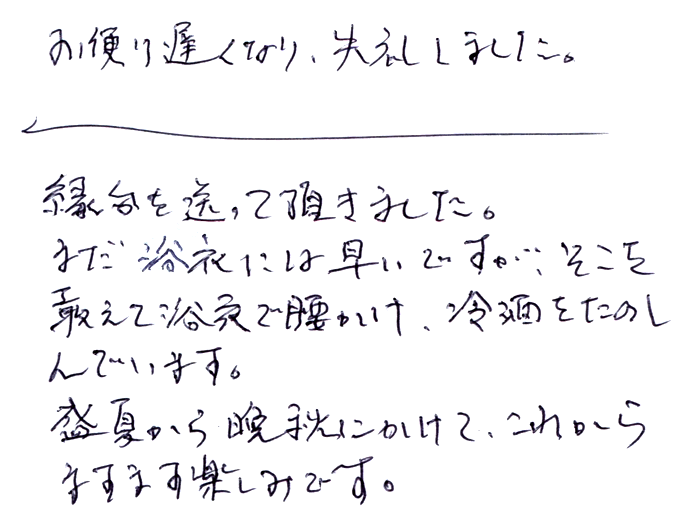 お便り遅くなり、失礼しました。
縁台を送って頂きました。
まだ浴衣には早いですが、そこを
敢えて浴衣で腰かけ、冷酒をたのし
んでいます。
盛夏から晩秋にかけて、これから
ますます楽しみです。